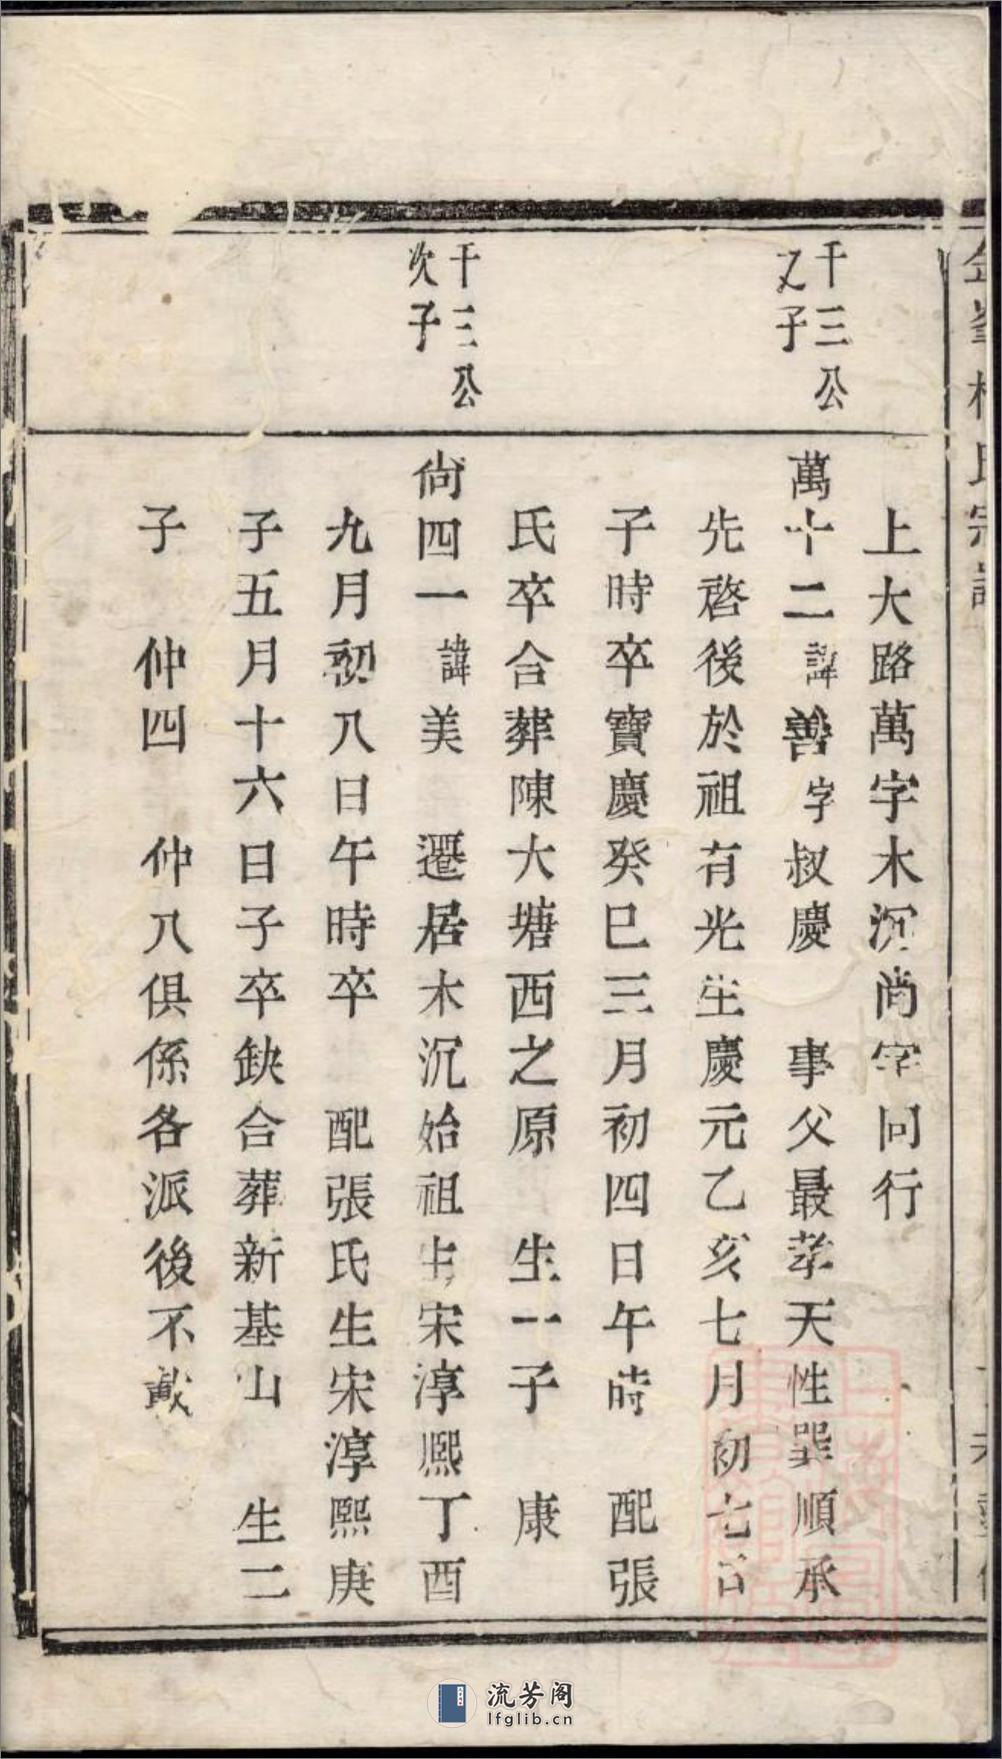 上大路萬字木沉尚字同行
千三公
又子
萬十二諱善字叔慶 事父最孝天性巽順承
先啓後於祖有光生慶元乙亥七月初七日
子時卒寶慶癸巳三月初四日午時 配張
氏卒合葬陳大塘西之原 生一子 康
千三公
次子
尙四一諱美 遷居木沉始祖生宋淳熙丁酉
九月初八日午時卒 配張氏生宋淳熙庚
子五月十六日子卒缺合葬新基山 生二
子 仲四 仲八俱係各派後不載
流芳阁
lfglib.cn